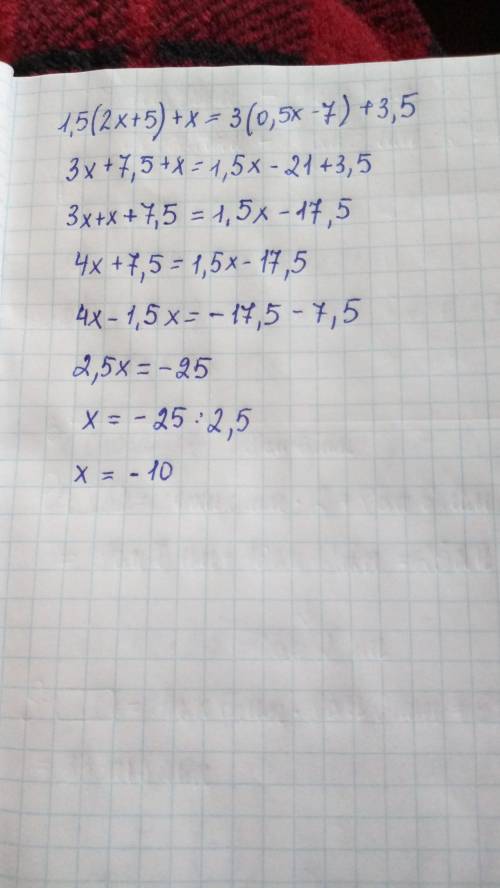 1,5(2x+5)+x=3(0,5x-7)+3,5
3x+7,5+x=1,5x-21+3,5
3x+x+7,5=1,5x-17,5
4x+7,5=1,5x-17,5
4x-1,5x=-17,5-7,5
2,5x=-25
x=-25:2,5
x=-10